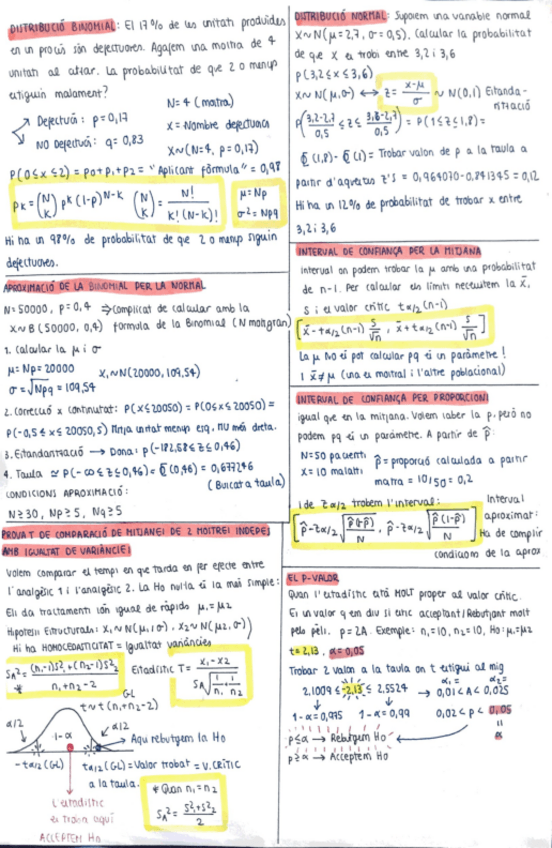 DISTRIBUCIÓ BINOMIAL: El 17% de les unitats produïdes
en un procés són defectuoses. Agafem una mostra de 4
unitats al atzar. La probabilitat de que 2 o menys
estiguin malament?
N=4 (mostra)
Defectuós: p=0,17
X=Nombre defectuosos
No defectuós: q=0,83
X~(N=4, p=0,17)
P(0≤x≤2)=p0+p1+p2="Aplicant fórmula"=0,98
Pk=(N k) p^k (1-p)^N-k (N k)= N! / k!(N-k)!
μ=Np
σ²=Npq
Hi ha un 98% de probabilitat de que 2 o menys siguin
defectuoses.
APROXIMACIÓ DE LA BINOMIAL PER LA NORMAL
N=50000, p=0,4 ⇒ Complicat de calcular amb la
X~B(50000, 0,4) fórmula de la Binomial (N molt gran)
1. Calcular la μ i σ
μ=Np=20000
X1~N(20000, 109,54)
σ=√Npq=109,54
2. Correcció x continuïtat: P(X≤20050)=P(0≤X≤20050)=
P(-0,5≤X≤20050,5) Mitja unitat menys esq, mu més dreta.
3. Estandarització → Dona: P(-182,58≤Z≤0,46)
4. Taula ≃ P(-∞≤Z≤0,46)=Φ(0,46)=0,677246
(Buscat a taula)
CONDICIONS APROXIMACIÓ:
N≥30, Np≥5, Nq≥5
PROVA T DE COMPARACIÓ DE MITJANES DE 2 MOSTRES INDEPES
AMB IGUALTAT DE VARIÀNCIES
Volem comparar el temps en que tarda en fer efecte entre
l'analgèsic 1 i l'analgèsic 2. La Ho nul·la és la més simple:
Els dos tractaments són igual de ràpids μ1=μ2
Hipòtesis Estructurals: X1~N(μ1,σ), X2~N(μ2,σ)
Hi ha HOMOCEDASTICITAT = Igualtat variàncies
SA²= (n1-1)S²1+(n2-1)S²2 / n1+n2-2
Estadístic T= x1-x2 / SA√(1/n1+1/n2)
*
GL
t~t(n1+n2-2)
α/2
1-α
α/2
Aquí rebutgem la Ho
-tα/2(GL)
tα/2(GL)=Valor trobat=V.CRÍTIC
a la taula.
L'estadístic
es troba aquí
ACCEPTEM Ho
* Quan n1=n2
SA²= S²1+S²2 / 2
DISTRIBUCIÓ NORMAL: Suposem una variable normal
X~N(μ=2,7, σ=0,5). Calcular la probabilitat
de que X es trobi entre 3,2 i 3,6
P(3,2≤x≤3,6)
X~N(μ,σ) ↔ Z= x-μ / σ ~N(0,1) Estanda-
rització
P(3,2-2,7 / 0,5 ≤Z≤ 3,6-2,7 / 0,5)=P(1≤Z≤1,8)=
Φ(1,8)-Φ(1)=Trobar valors de p a la taula a
partir d'aquestes Z's=0,964070-0,841345=0,12
Hi ha un 12% de probabilitat de trobar x entre
3,2 i 3,6
INTERVAL DE CONFIANÇA PER LA MITJANA
Interval on podem trobar la μ amb una probabilitat
de n-1. Per calcular els límits necessitem la x̄,
S i el valor crític tα/2(n-1)
[x̄-tα/2(n-1) S/√n, x̄+tα/2(n-1) S/√n]
La μ NO es pot calcular pq és un paràmetre!
I x̄≠μ (una és mostral i l'altre poblacional)
INTERVAL DE CONFIANÇA PER PROPORCIONS
igual que en la mitjana. Volem saber la p, però no
podem pq és un paràmetre. A partir de p̂:
N=50 pacients
p̂=proporció calculada a partir
X=10 malalts
mostra=10/50=0,2
I de Zα/2 trobem l'interval:
Interval
aproximat:
[p̂-Zα/2√(p̂(1-p̂)/N), p̂-Zα/2√(p̂(1-p̂)/N)]
Ha de complir
condicions de la aprox
EL P-VALOR
Quan l'estadístic està MOLT proper al valor crític.
És un valor q ens diu si estic acceptant/Rebutjant molt
pels pèls. p=2A. Exemple: n1=10, n2=10, Ho: μ1=μ2
t=2,13, α=0,05
Trobar 2 valors a la taula on t estigui al mig
α1= α2=
2,1009≤-2,13≤2,5524 → 0,01≤A≤0,025
1-α=0,975 1-α=0,99 0,02<p<0,05
=
α
p≤α → Rebutgem Ho
p≥α → Acceptem Ho